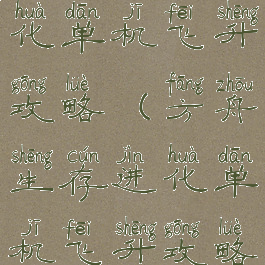 huà dān jī fēi shēng
化单机飞升
gōng lüè fāng zhōu
攻略(方舟
shēng cún jìn huà dān
生存进化单
jī fēi shēng gōng lüè
机飞升攻略